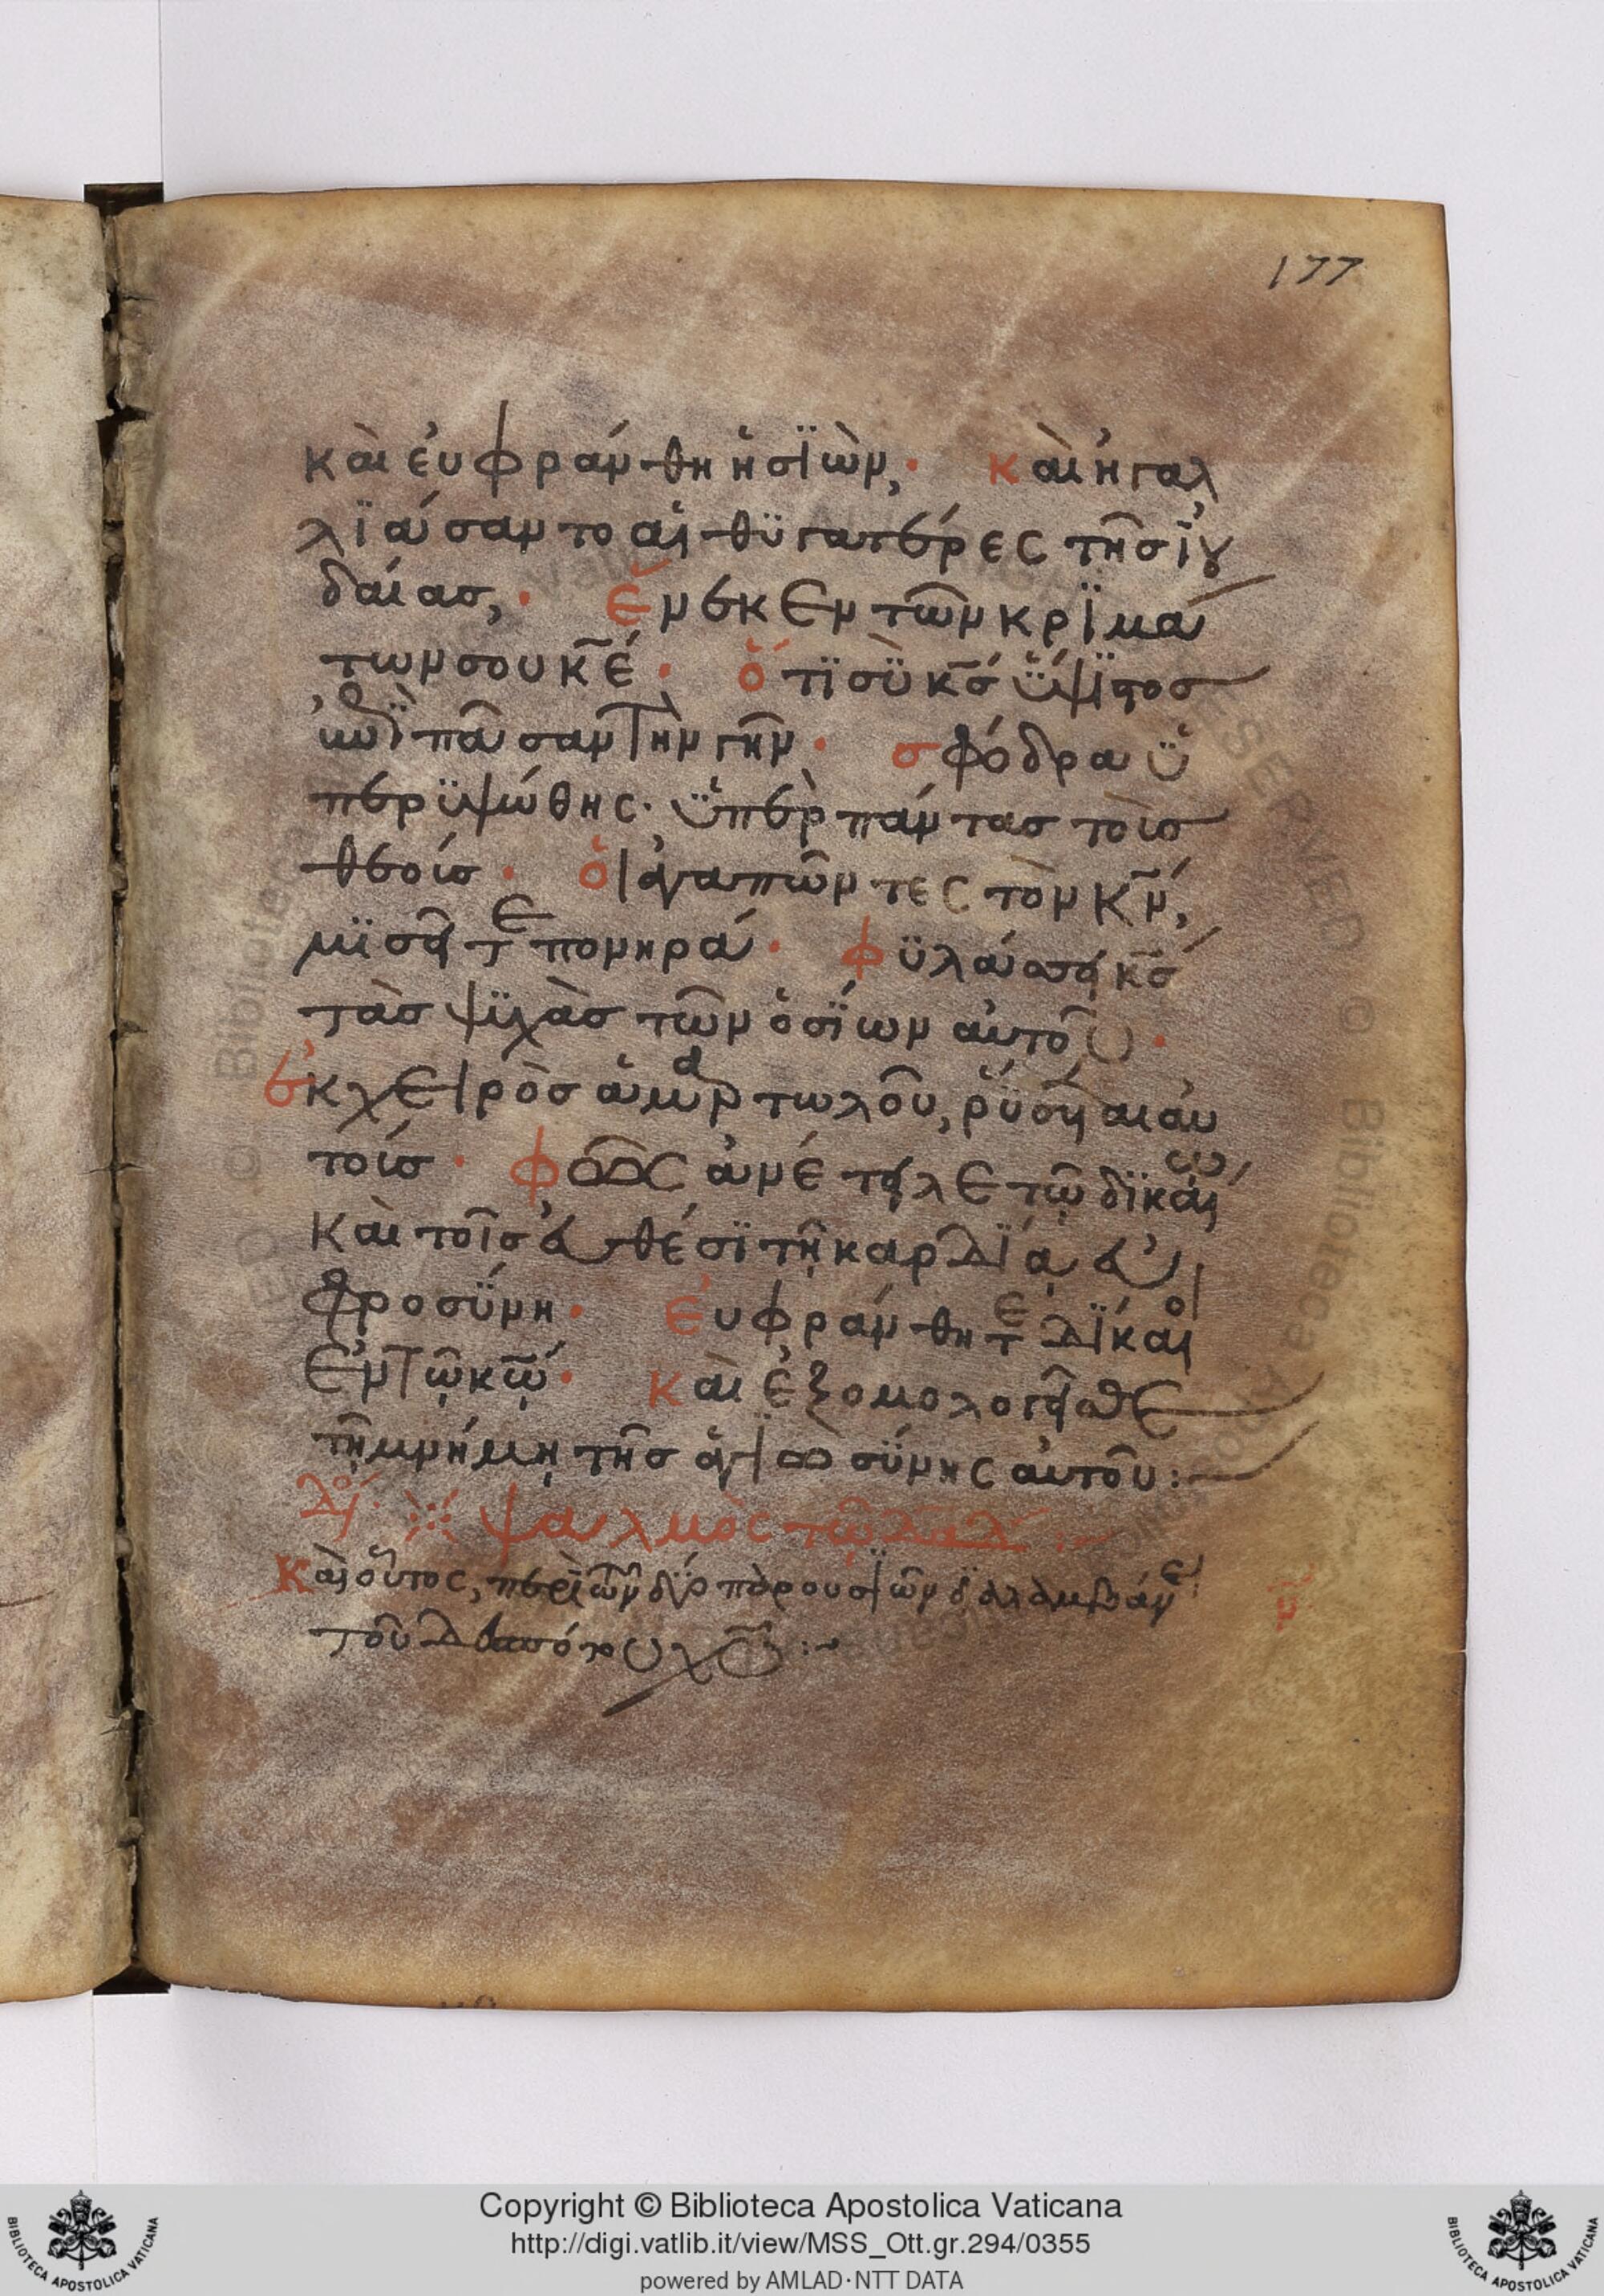 177
καὶ ἐυφράνθη ἡ σϊὼν, · καὶ ἠγαλ
λϊάσαντο αἱ θϋγατέρες τῆσ ἰου
δαίασ, · ἕνεκεν τῶν κρϊμά
των σου κ̅ε̅ · ὅτϊ σὺ κ̅σ̅ ὕψϊστοσ
ἐπὶ πᾶσαν τὴν γῆν · σφόδρα ὑ
περϋψώθης · ὑπὲρ πάντασ τοὺσ
θεούσ · ὁι ἀγαπῶντες τὸν κ̅ν̅,
μϊσεῖτε πονηρά · φϋλάσσει κ̅σ̅
τὰσ ψϋχὰσ τῶν ὁσΐων αὐτοῦ ·
ἐκ χειρὸσ ἁμαρτωλοῦ, ῥύσεται αὐ
τούσ · φῶς ἀνέτειλε τῷ δϊκαίω
καὶ τοῖσ ἐυθέσϊ τῇ καρδΐᾳ ἐυ
φροσύνη · Ἐυφράνθητε δΐκαιοι
ἐν τῷ κ̅ω̅ · καὶ ἐξομολογεῖσθε
τῇ μνήμῃ τῆσ ἁγϊωσύνης αὐτοῦ :
ψαλμὸς τῷ δαδ :
Καὶ οὗτος, περὶ τῶν δύο παρουσϊῶν δϊαλαμβάνει
τοῦ δεσπότου χ̅υ̅ :~
Copyright © Biblioteca Apostolica Vaticana
http://digi.vatlib.it/view/MSS_Ott.gr.294/0355
powered by AMLAD·NTT DATA
BIBLIOTECA APOSTOLICA VATICANA
BIBLIOTECA APOSTOLICA VATICANA